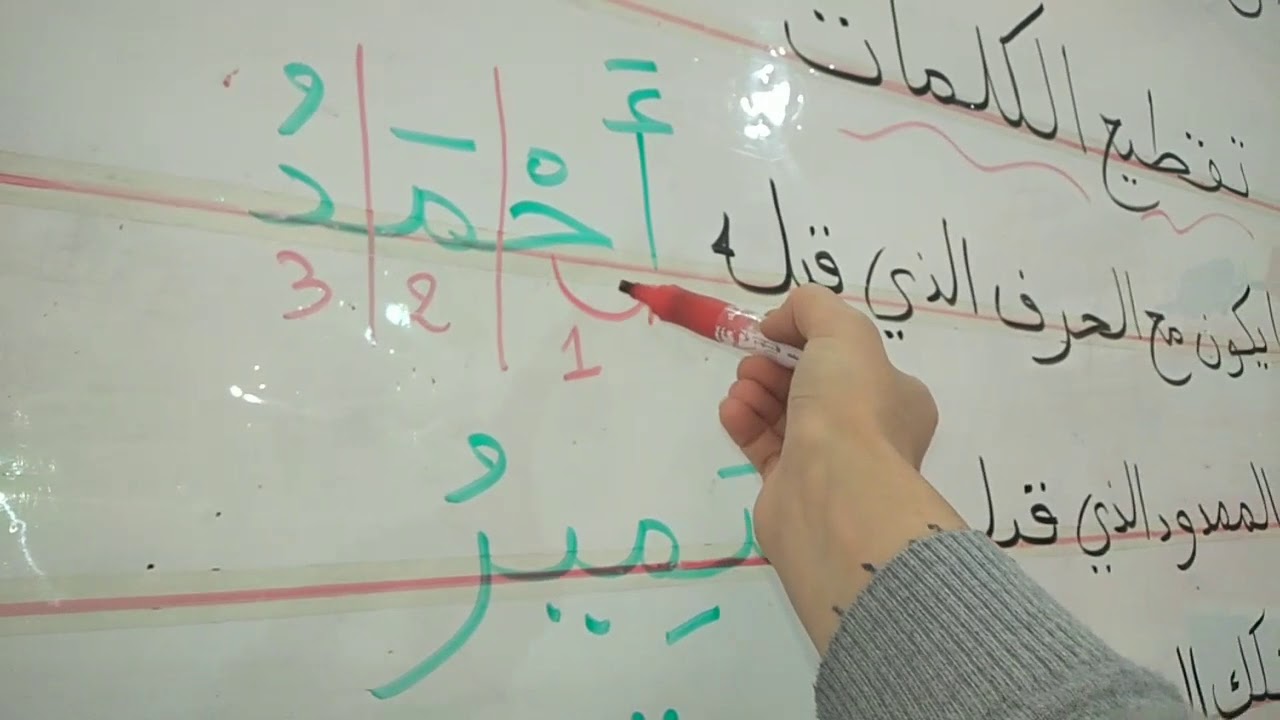 تقطيع الكلمات
يكون مع الحرف الذي قبله
الممدود الذي
أَحْمَدُ
1 2 3
مِيرُ